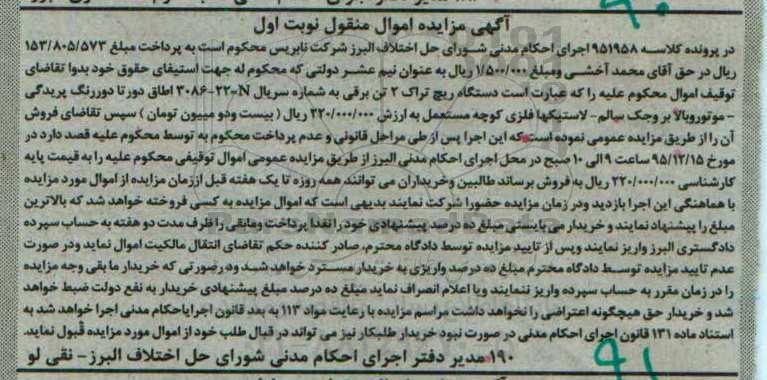 آگهی مزایده اموال منقول نوبت اول
در پرونده کلاسه ۹۵۱۹۵۸ اجرای احکام مدنی شورای حل اختلاف البرز شرکت نابریس محکوم است به پرداخت مبلغ ۱۵۳/۸۰۵/۵۷۳
ریال در حق آقای محمد آخشی ومبلغ ۱/۵۰۰/۰۰۰ ریال به عنوان نیم عشر دولتی که محکوم له جهت استیفای حقوق خود بدوا تقاضای
توقیف اموال محکوم علیه را که عبارت است دستگاه ریچ تراک ۲ تن برقی به شماره سریال ۳۰۸۶-۲۲-N اطاق دور تا دوررنگ پریدگی
- موتوروبالا بر وجک سالم- لاستیکها فلزی کوچه مستعمل به ارزش ۲۲۰/۰۰۰/۰۰۰ ریال ( بیست ودو میبون تومان ) سپس تقاضای فروش
آن را از طریق مزایده عمومی نموده است که این اجرا پس از طی مراحل قانونی و عدم پرداخت محکوم به توسط محکوم علیه قصد دارد در
مورخ ۹۵/۱۲/۱۵ ساعت ۹ الی ۱۰ صبح در محل اجرای احکام مدنی البرز از طریق مزایده عمومی اموال توقیفی محکوم علیه را به قیمت پایه
کارشناسی ۲۲۰/۰۰۰/۰۰۰ ریال به فروش برساند طالبین وخریداران می توانند همه روزه تا یک هفته قبل اززمان مزایده از اموال مورد مزایده
با هماهنگی این اجرا بازدید ودر زمان مزایده حضورا شرکت نمایند بدیهی است که اموال مزایده به کسی فروخته خواهد شد که بالاترین
مبلغ را پیشنهاد نمایند و خریدار می بایستی مبلغ ده درصد پیشنهادی خود را نقدا پرداخت ومابقی را ظرف مدت دو هفته به حساب سپرده
دادگستری البرز واریز نمایند وپس از تایید مزایده توسط دادگاه محترم، صادر کننده حکم تقاضای انتقال مالکیت اموال نماید ودر صورت
عدم تایید مزایده توسط دادگاه محترم مبلغ ده درصد واریزی به خریدار مسترد خواهد شد ودرصورتی که خریدار ما بقی وجه مزایده
را در زمان مقرر به حساب سپرده واریز ننمایند ویا اعلام انصراف نماید مبلغ ده درصد مبلغ پیشنهادی خریدار به نفع دولت ضبط خواهد
شد و خریدار حق هیچگونه اعتراضی را نخواهد داشت مراسم مزایده با رعایت مواد ۱۱۳ به بعد قانون اجرایاحکام مدنی اجرا خواهد شد به
استناد ماده ۱۳۱ قانون اجرای احکام مدنی در صورت نبود خریدار طلبکار نیز می تواند در قبال طلب خود از اموال مورد مزایده قبول نماید.
۱۹۰ مدیر دفتر اجرای احکام مدنی شورای حل اختلاف البرز- نقی لو
۹۱